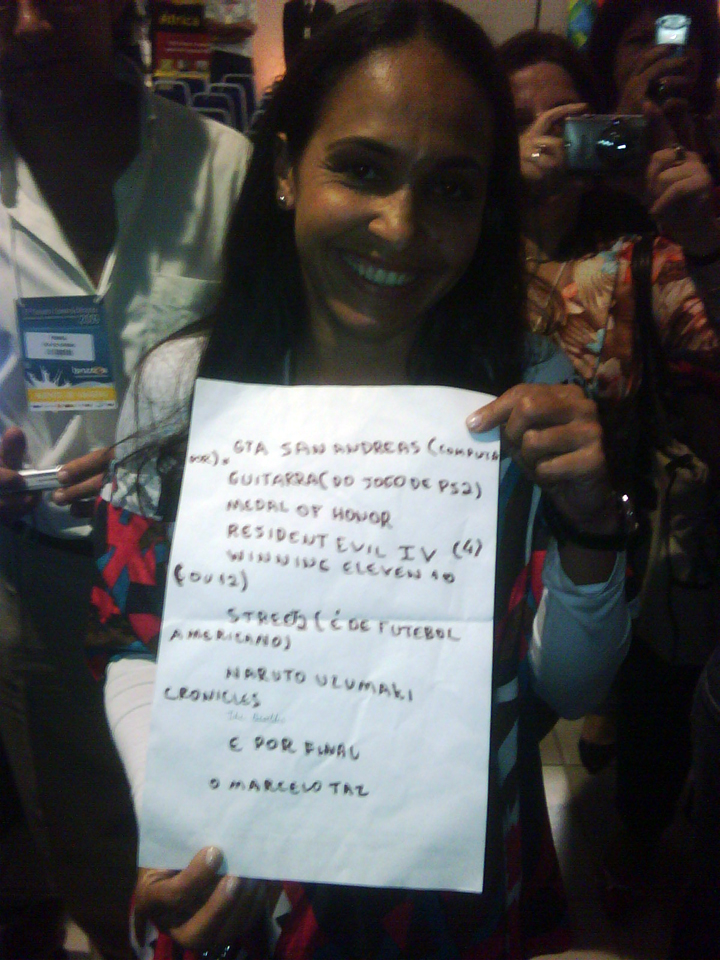 África
GTA SAN ANDREAS (COMPUTA
DOR).
GUITARRA (DO JOGO DE PS2)
MEDAL OF HONOR
RESIDENT EVIL IV (4)
WINNING ELEVEN 10
(OU 12)
STREETS (É DE FUTEBOL
AMERICANO)
NARUTO UZUMAKI
CRONICLES
E POR FINAL
O MARCELO TAZ